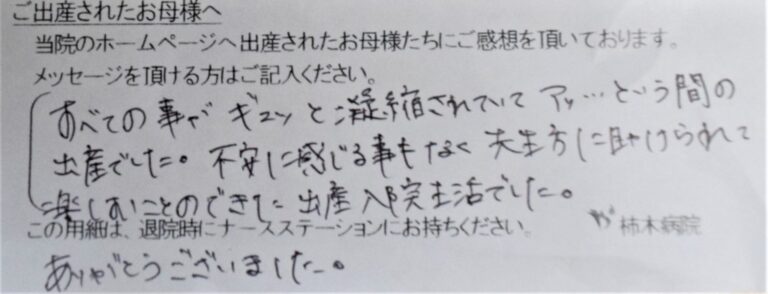 ご出産されたお母様へ
当院のホームページへ出産されたお母様たちにご感想を頂いております。
メッセージを頂ける方はご記入ください。
すべての事がギュッと凝縮されていてアッ…という間の
出産でした。不安に感じる事もなく先生方に助けられて
楽しむことのできた出産入院生活でした。
この用紙は、退院時にナースステーションにお持ちください。 柿木病院
ありがとうございました。